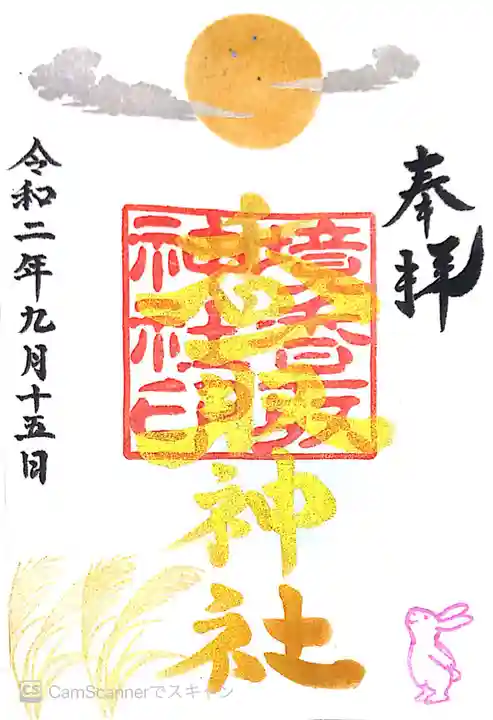 奉拝
香取神社
令和二年九月十五日
CS CamScannerでスキャン